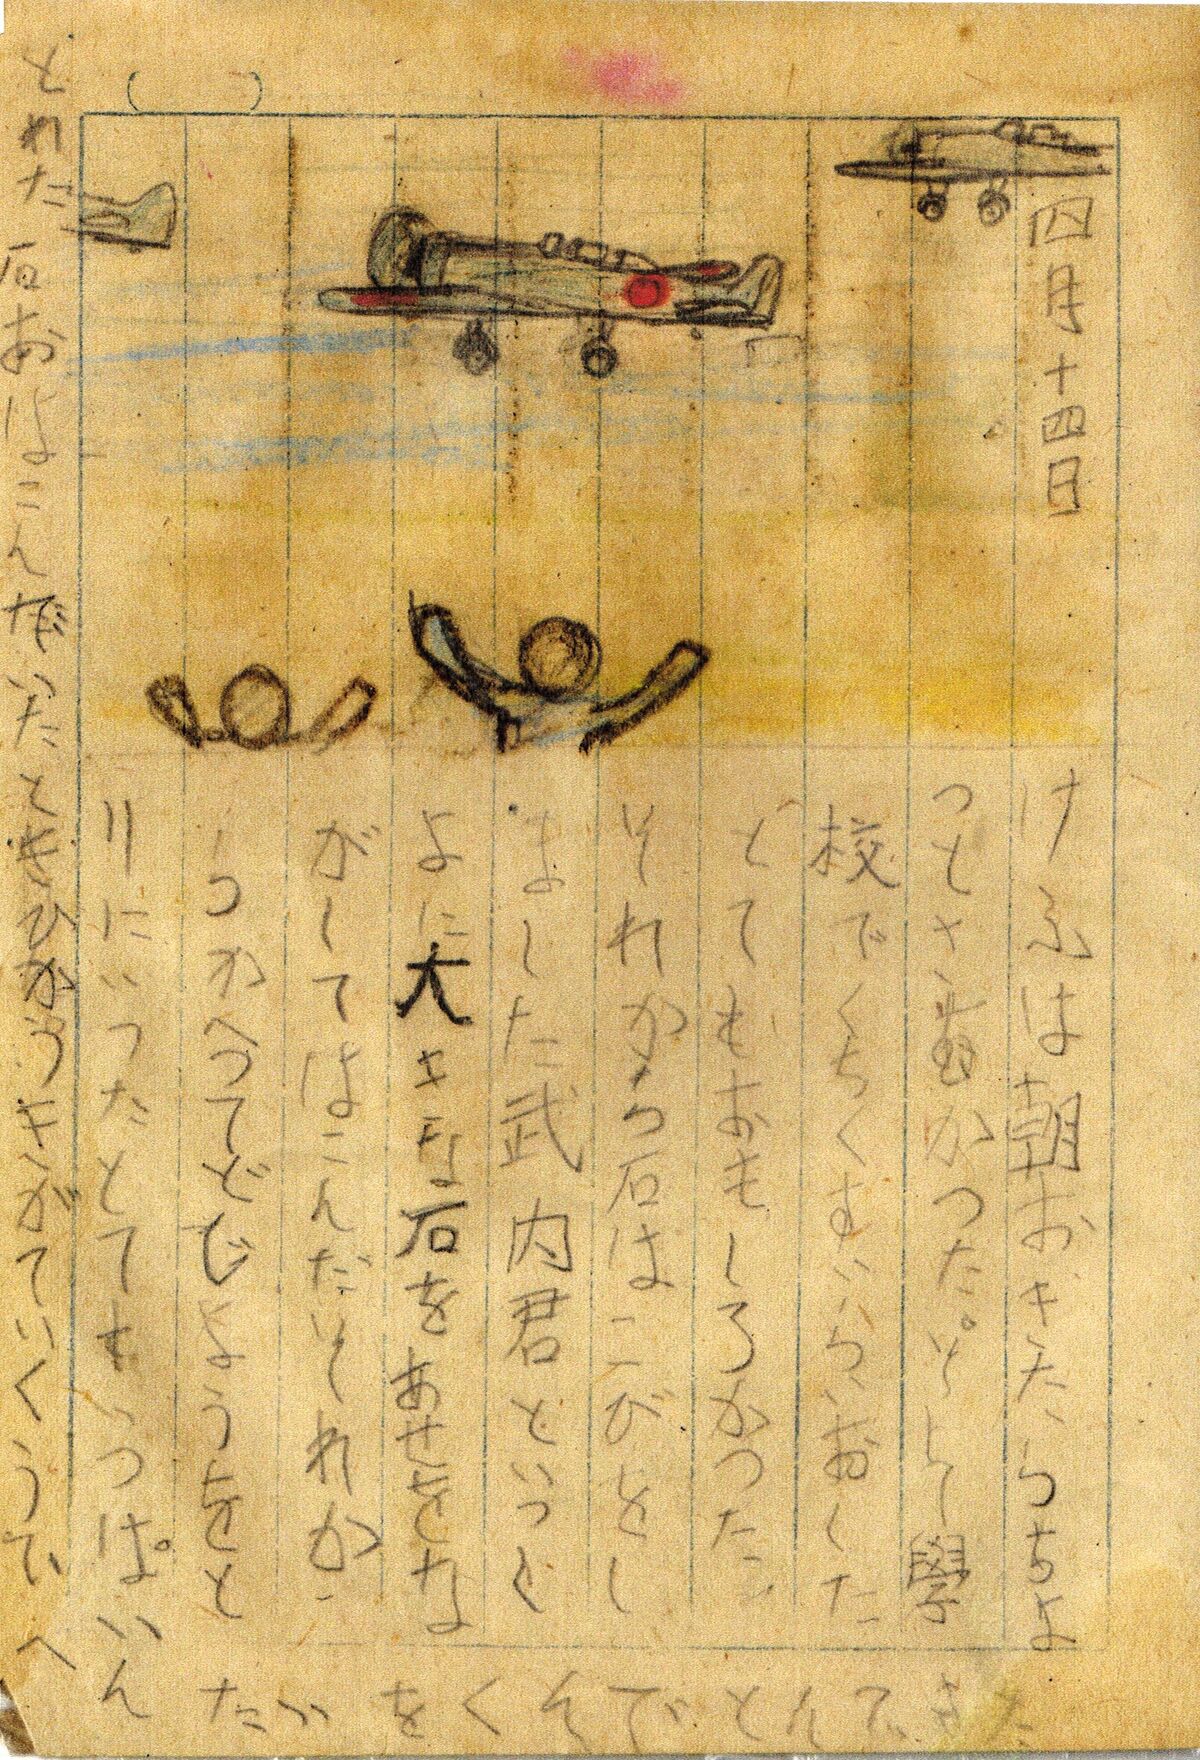 四月十四日
けふは朝おきたらちよ
つとさむかつた。そして學
校でくちくすいらいおした
とてもおもしろかつた
それから石はこびをし
ました武内君といつく
よに大きな石をあせをな
がしてはこんだそれか
らつかへつてどじようをと
りにいつたとてもいつぱいん
とれた石おはこんでいたときひかうきがていくうで
たいをくんでとんできた